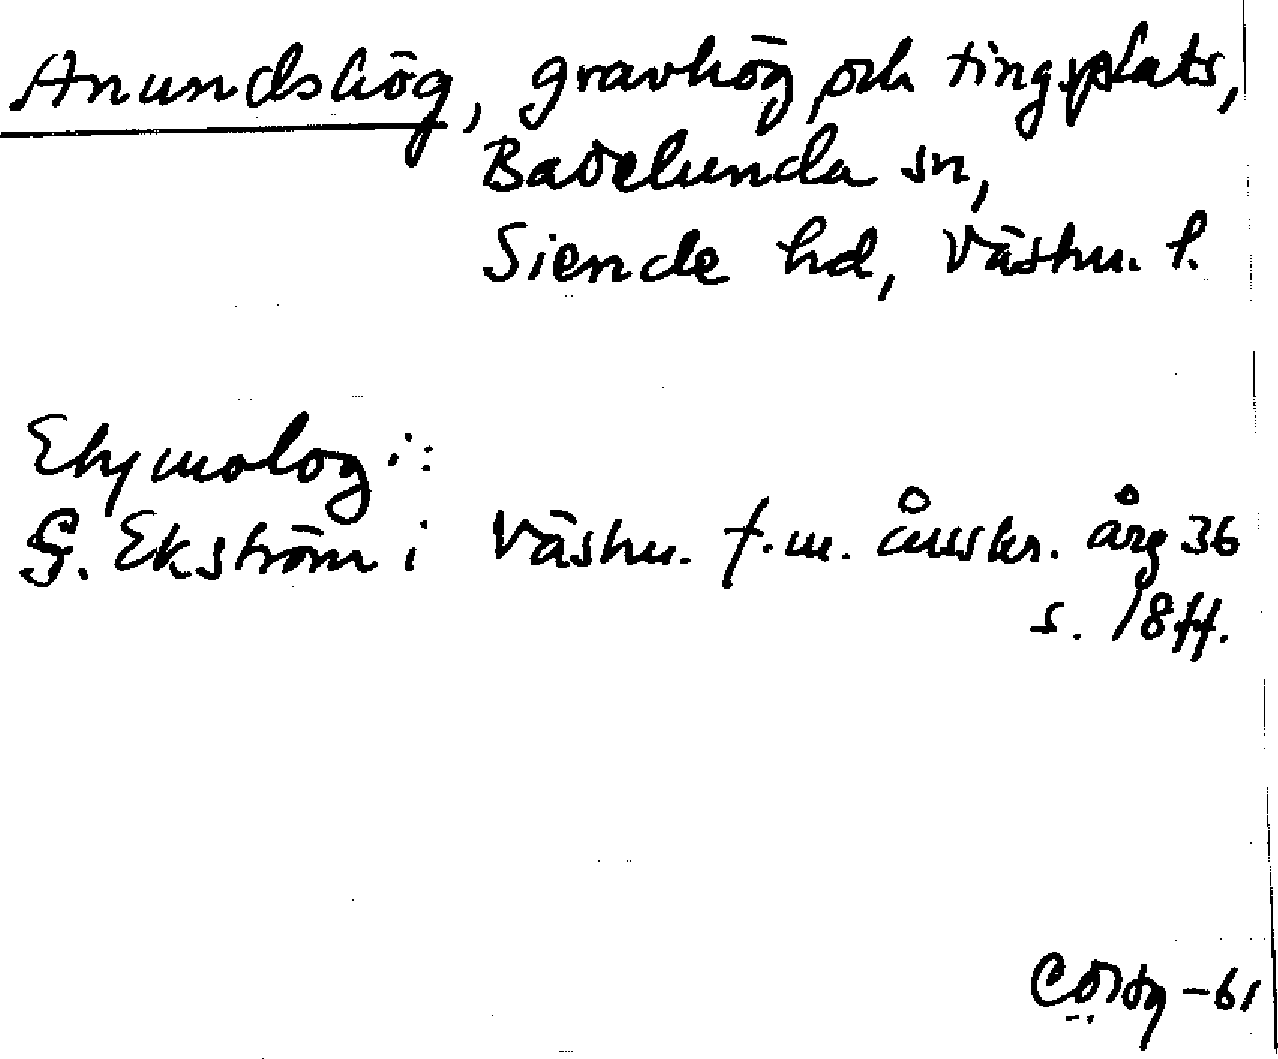 Anundshög, gravhög och tingsplats,
Badelunda sn,
Siende hd, Västm. l.
Etymologi:
G. Ekström i Västm. f.m. årsskr. årg 36
s. 18 ff.
-61